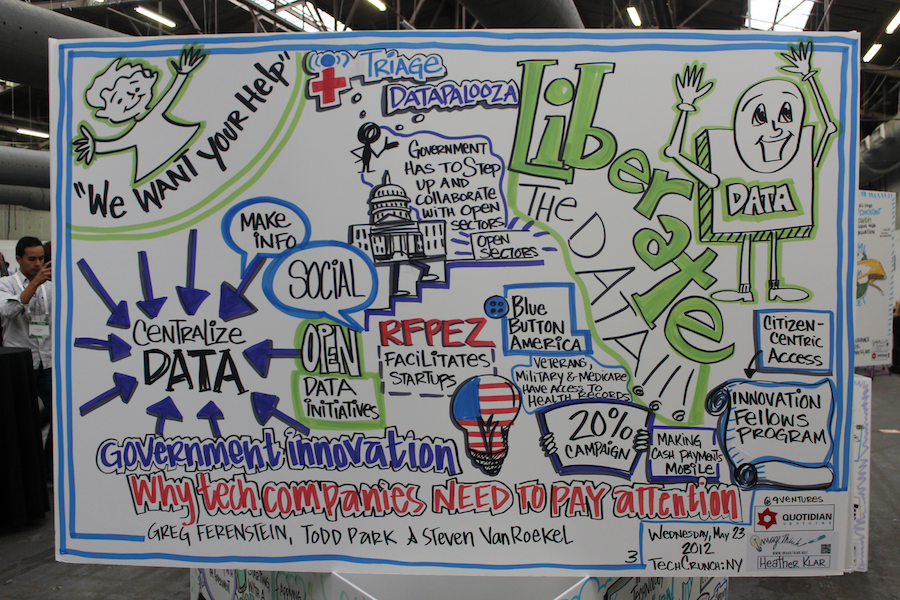 "We Want Your Help"
Triage
Datapalooza
Government
has to step
up and
collaborate
with open
sectors
Open
sectors
Liberate
The Data
Data
Make
Info
Social
Centralize
Data
Open
Data
Initiatives
RFPEZ
Facilitates
Startups
Blue
Button
America
Veterans,
Military & Medicare
have access to
health records
20%
Campaign
Making
Cash Payments
Mobile
Citizen-
Centric
Access
Innovation
Fellows
Program
Government innovation
Why tech companies NEED TO PAY attention
Greg Ferenstein, Todd Park & Steven VanRoekel
3
Wednesday, May 23
2012
TechCrunch: NY
@qventures
QUOTIDIAN
VENTURES
ImageThink
www.imagethink.net
Heather Klar